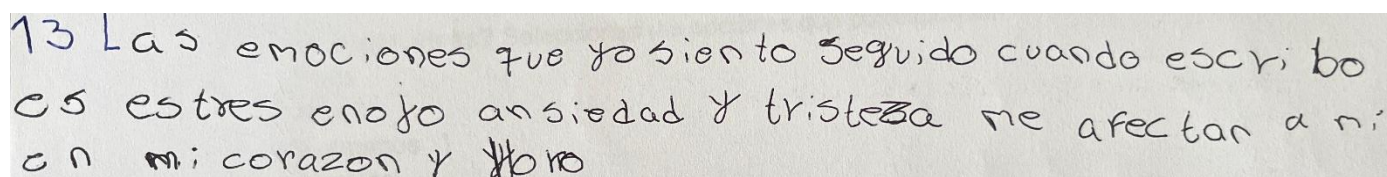 13 Las emociones que yo siento seguido cuando escribo
es estres enojo ansiedad y tristeza me afectan a mi
en mi corazon y lloro